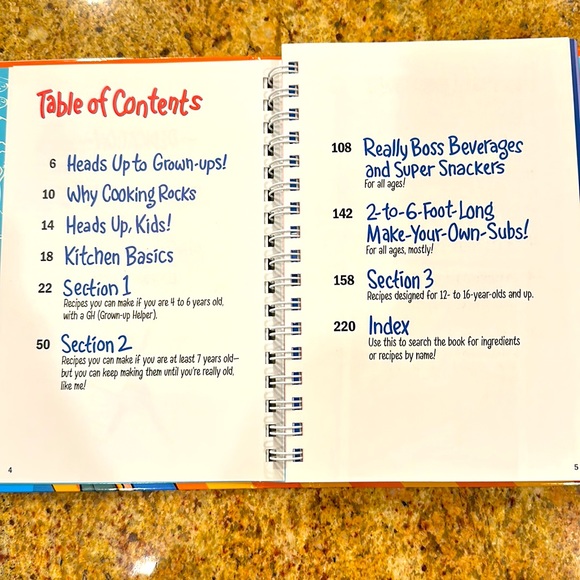 Table of Contents
6 Heads Up to Grown-ups!
10 Why Cooking Rocks
14 Heads Up, Kids!
18 Kitchen Basics
22 Section 1
Recipes you can make if you are 4 to 6 years old,
with a GH (Grown-up Helper).
50 Section 2
Recipes you can make if you are at least 7 years old—
but you can keep making them until you're really old,
like me!
4
108 Really Boss Beverages
and Super Snackers
For all ages!
142 2-to-6-Foot-Long
Make-Your-Own-Subs!
For all ages, mostly!
158 Section 3
Recipes designed for 12- to 16-year-olds and up.
220 Index
Use this to search the book for ingredients
or recipes by name!
5